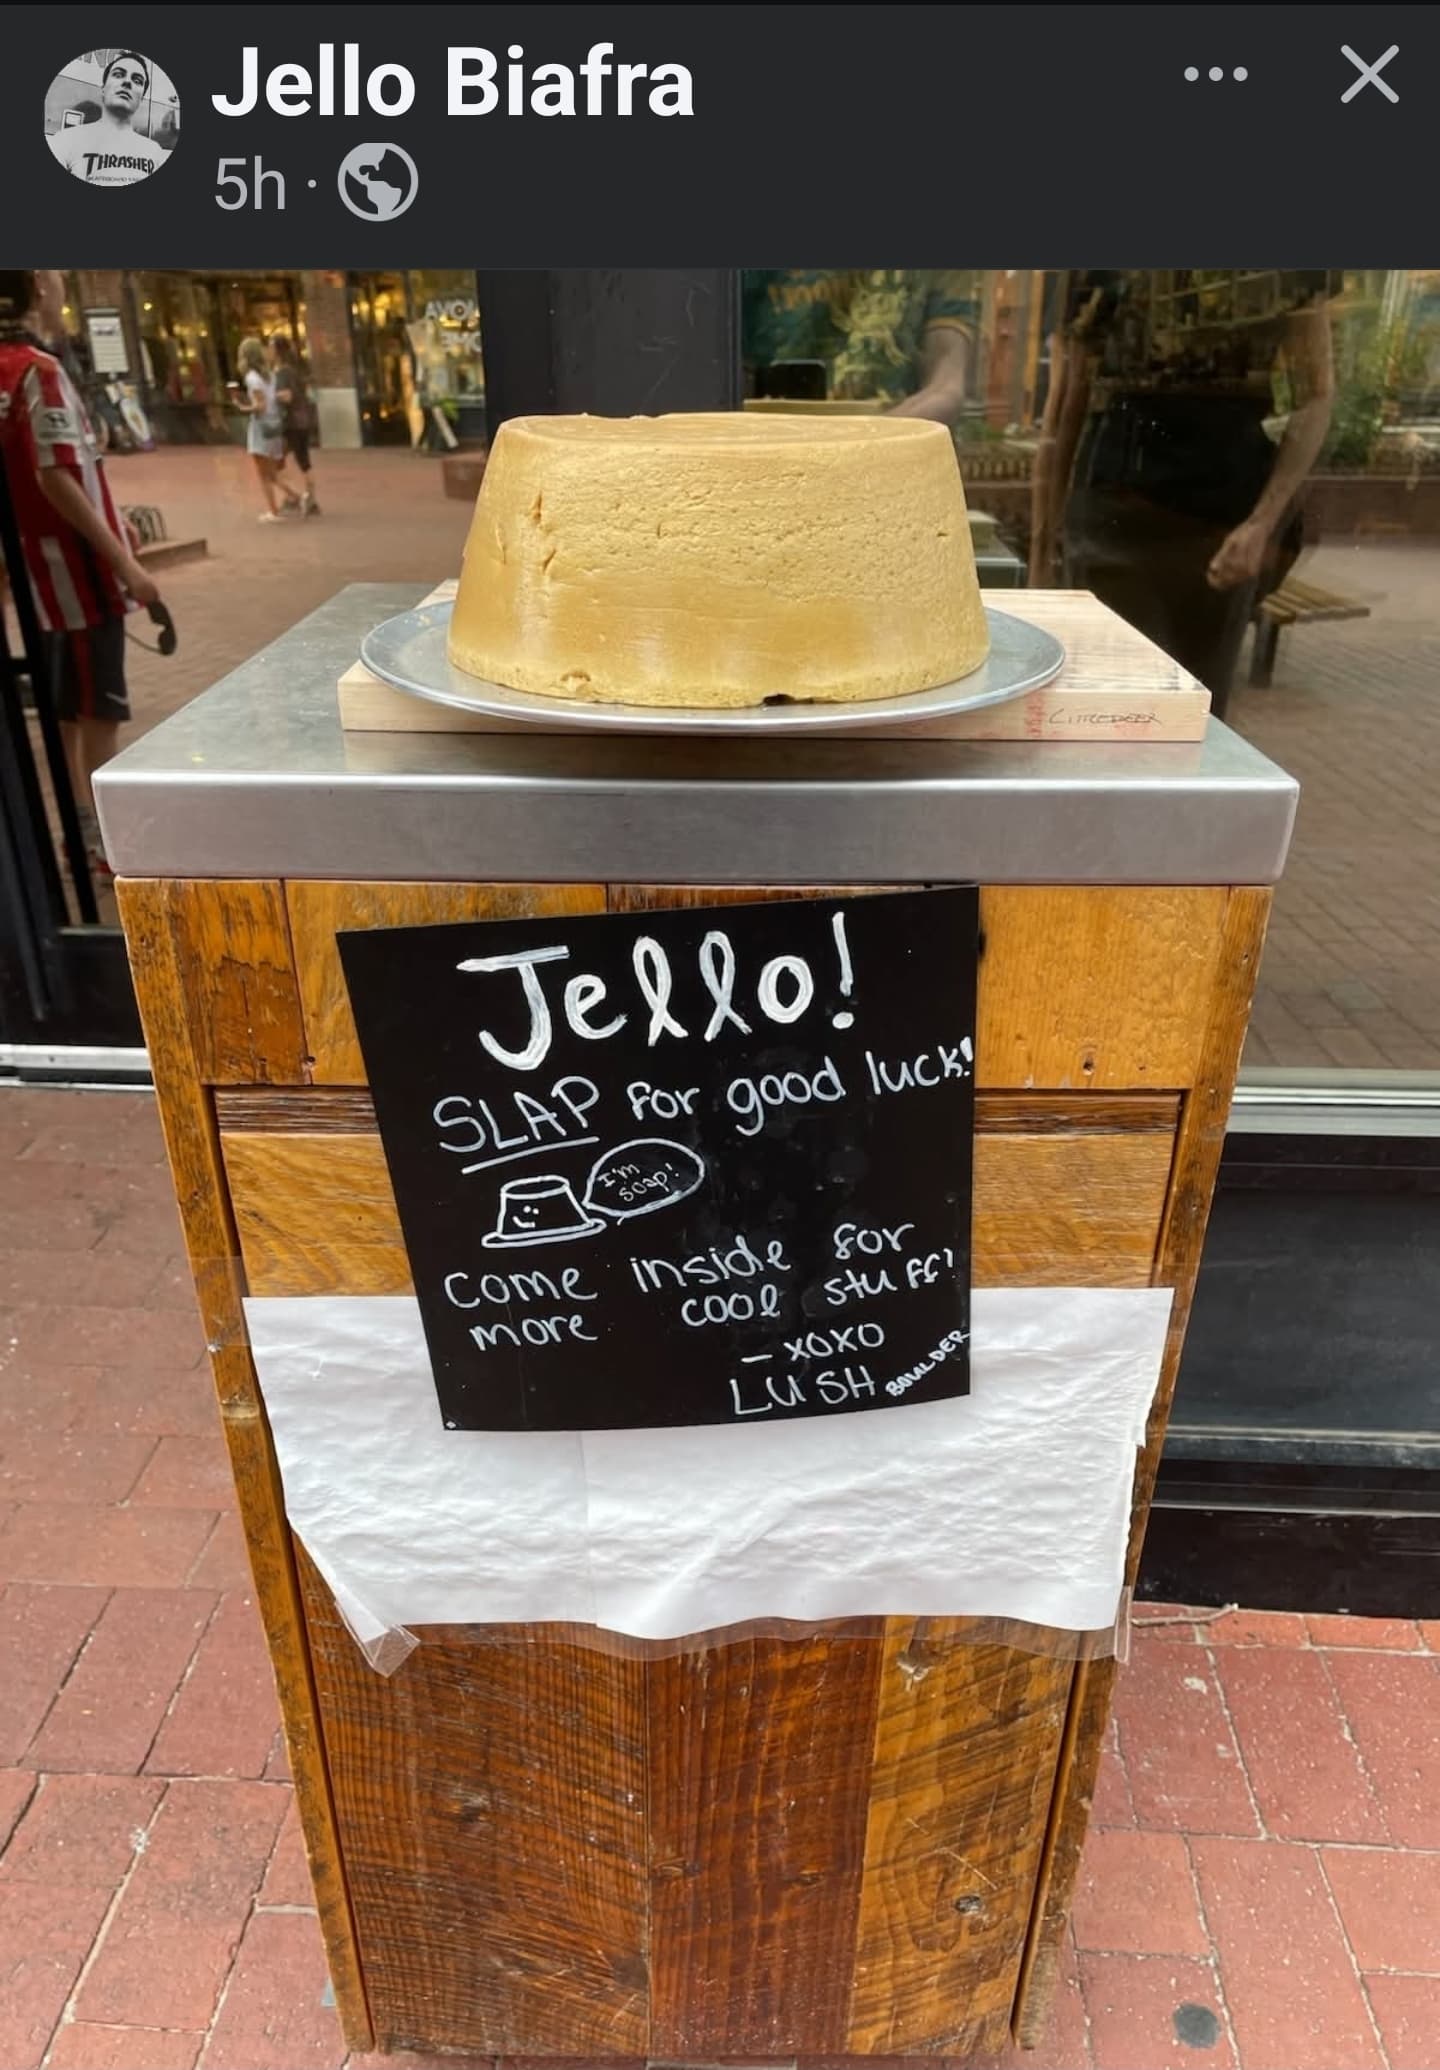 Jello Biafra
5h ·
THRASHER
Jello!
SLAP for good luck!
I'm
soap!
Come inside for
more cool stuff!
– XOXO
LUSH BOULDER